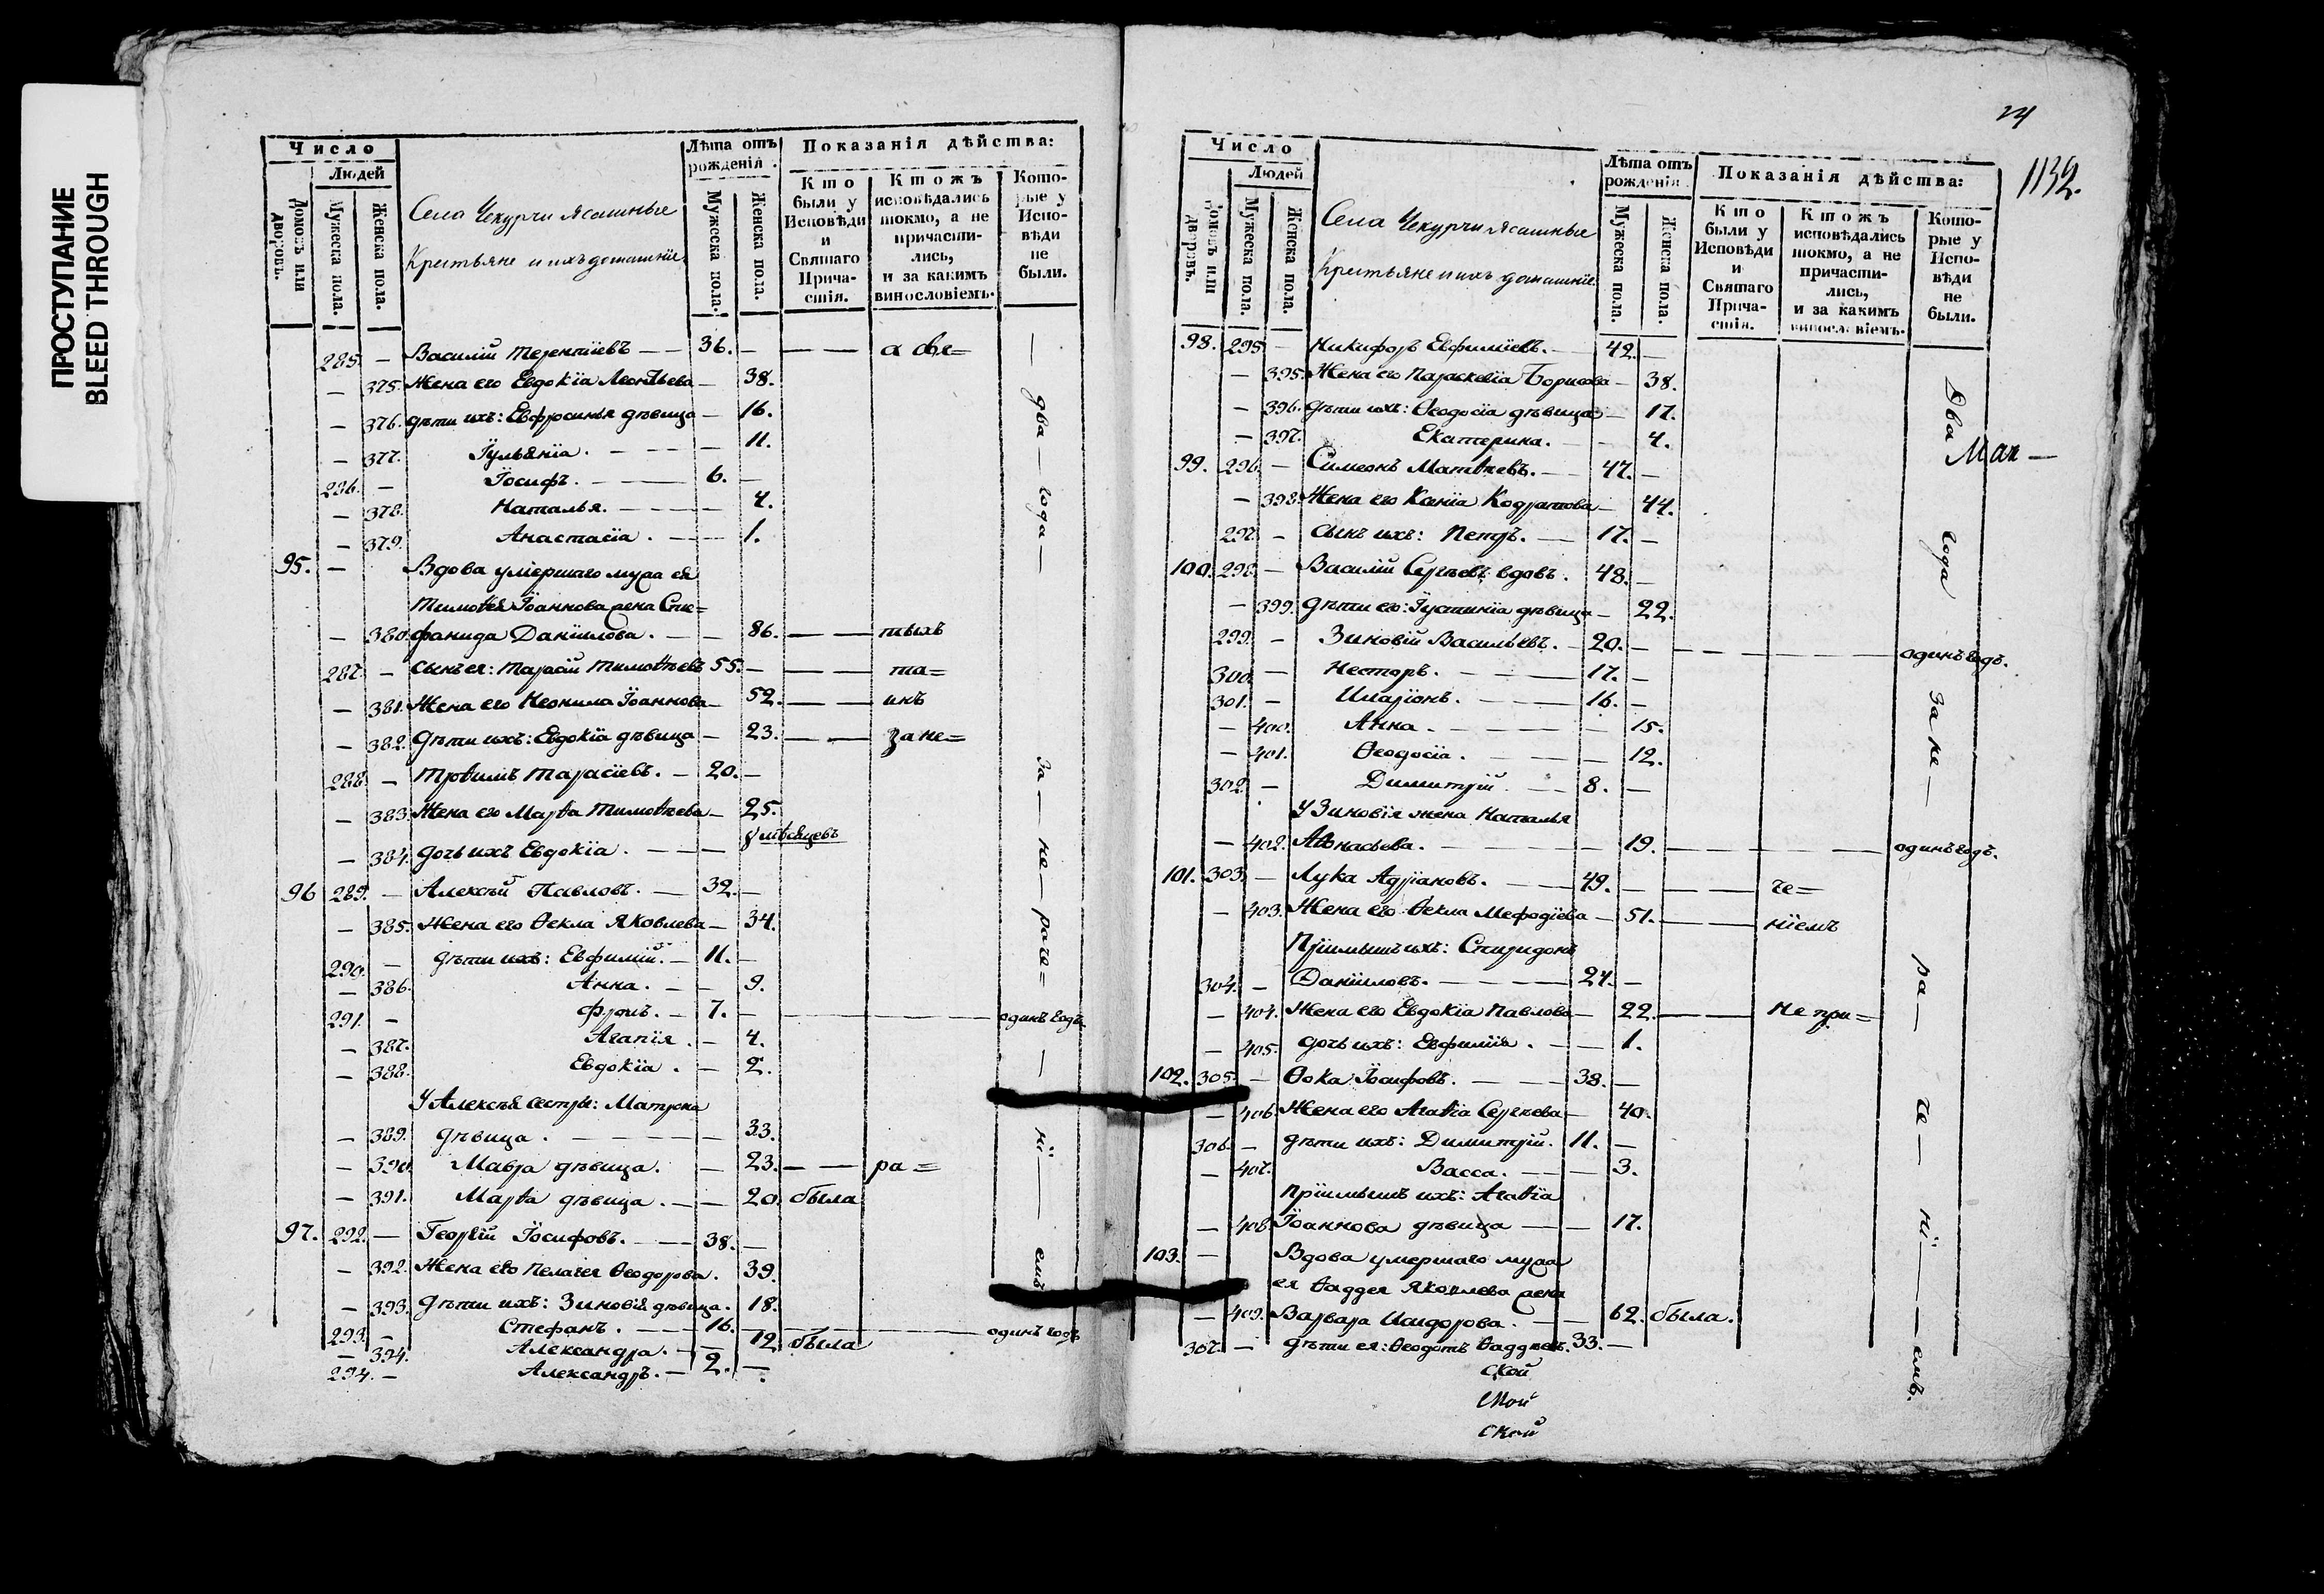 ПРОСТУПАНИЕ
BLEED THROUGH
Число
Людей
Домовъ или дворовъ.
Мужеска пола.
Женска пола.
Села Чекурчи Ясашные
Крестьяне и ихъ домашніе
Лѣта отъ рожденія.
Мужеска пола.
Женска пола.
Показанія дѣйства:
Кто были у Исповѣди и Святаго Прича- стія.
Ктожъ исповѣдались токмо, а не причасти- лись, и за какимъ винословіемъ.
Кото- рые у Испо- вѣди не были.
285. — Василій Терентіевъ — — 36. — — —
— 375. Жена его Евдокіа Леонтьева — 38.
— 376. Дѣти ихъ: Евфросинья дѣвица — 16.
— 377. Іульяніа. — — — 11.
286. — Іосифъ. — — 6. —
— 378. Наталья. — — — 4.
— 379. Анастасіа. — — 1.
95. — Вдова умершаго мужа ея
Тимоѳея Іоаннова жена Сте=
— 380. фанида Даніилова. — — 86. — — тыхъ
287. — Сынъ ея: Тарасій Тимоѳеевъ 55. — — — та=
— 381. Жена его Неонила Іоаннова — 52. — — инъ
— 382. Дѣти ихъ: Евдокіа дѣвица — 23. — — за не=
288. — Троѳимъ Тарасіевъ. — 20. —
— 383. Жена его Марѳа Тимоѳеева — 25.
8 мѣсяцевъ
— 384. Дочь ихъ Евдокіа. — — —
96 289. — Алексѣй Павловъ. — 32. —
— 385. Жена его Ѳекла Яковлева — 34.
290. — дѣти ихъ: Евфимій. — 11. —
— 386. Анна. — — 9.
291. — Фролъ. — 7. — — — — одинъ годъ
— 387. Агапія. — 4.
— 388. Евдокіа. — 2.
У Алексѣя сестры: Матрона
— 389. дѣвица. — — — — 33.
— 390. Мавра дѣвица. — 23. — — ра=
— 391. Марѳа дѣвица. — — 20. была
97. 292. — Георгій Іосифовъ. — — 38. —
— 392. Жена его Пелагея Ѳеодорова. 39.
— 393. Дѣти ихъ: Зиновія дѣвица. 18.
293. — Стефанъ. — — 16. — — — одинъ годъ
— 394. Александра. — — 12 была
294. — Александръ. — 2. —
— два — года — за — не — раче= — ні — емъ
24
1132.
Число
Людей
Домовъ или дворовъ.
Мужеска пола.
Женска пола.
Села Чекурчи Ясашные
Крестьяне и ихъ домашніе
Лѣта отъ рожденія.
Мужеска пола.
Женска пола.
Показанія дѣйства:
Кто были у Исповѣди и Святаго Прича- стія.
Ктожъ исповѣдались токмо, а не причасти- лись, и за какимъ винословіемъ.
Кото- рые у Испо- вѣди не были.
98. 295. — Никифоръ Евфиміевъ. — 42. —
— 395. Жена его Параскевіа Борисова — 38.
— 396. Дѣти ихъ: Ѳеодосіа дѣвица — 17.
— 397. Екатерина. — — 4.
99. 296. — Симеонъ Матѳеевъ. — 47. —
— 398. Жена его Ксеніа Кодратова — 44.
297. — Сынъ ихъ: Петръ. — 17. —
100. 298. — Василій Сергѣевъ вдовъ. 48. —
— 399. Дѣти его: Іустиніа дѣвица — 22.
299. — Зиновій Васильевъ. — 20. — — — — одинъ годъ.
300. — Несторъ. — — 17. —
301. — Иларіонъ. — — 16. —
— 400. Анна. — — — 15.
— 401. Ѳеодосіа. — — — 12.
302. — Димитрій. — — 8. —
У Зиновія жена Наталья
— 402. Аѳонасьева. — — — 19. — — — одинъ годъ.
101. 303. — Лука Адріановъ. — — 49. — — — че=
— 403. Жена его Ѳекла Мефодіева — 51. — — ніемъ
Пріимышъ ихъ: Спиридонъ
304. — Даніиловъ. — — — 24. —
— 404. Жена его Евдокіа Павлова — 22. — — Не при=
— 405. дочь ихъ: Евфиміа. — — 1.
102. 305. — Ѳока Іосифовъ. — — 38. —
— 406. Жена его Агаѳіа Сергѣева — 40.
306. — дѣти ихъ: Димитрій. 11. —
— 407. Васса. — — 3.
Пріимышъ ихъ: Агаѳіа
— 408. Іоаннова дѣвица — — 17.
103. — Вдова умершаго мужа
ея Ѳаддея Яковлева жена
— 409. Варвара Исидорова. — — 62. была.
307. — Дѣти ея: Ѳеодотъ Ѳаддѣевъ. 33. —
Два года за не — ра — че — ні — емъ.
ской
ской